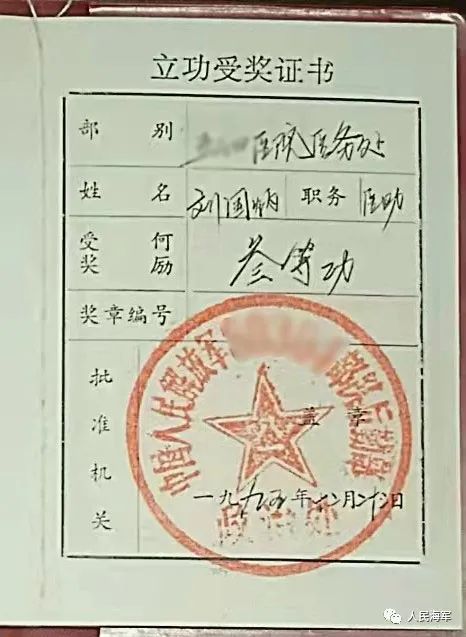 立功受奖证书
部 别 医院医务处
姓 名 刘国炳 职务 医助
受何奖励 叁等功
奖章编号
批准机关
中国人民解放军
盖 章
政治处
一九九五年十二月二十日
人民海军